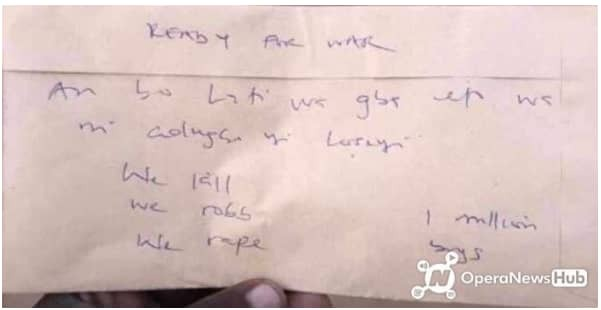 READY FOR WAR
An bo Lati wa gba eje wa
ni adugbo yi
We kill
we robb
We rape
1 million
boys
OperaNewsHub